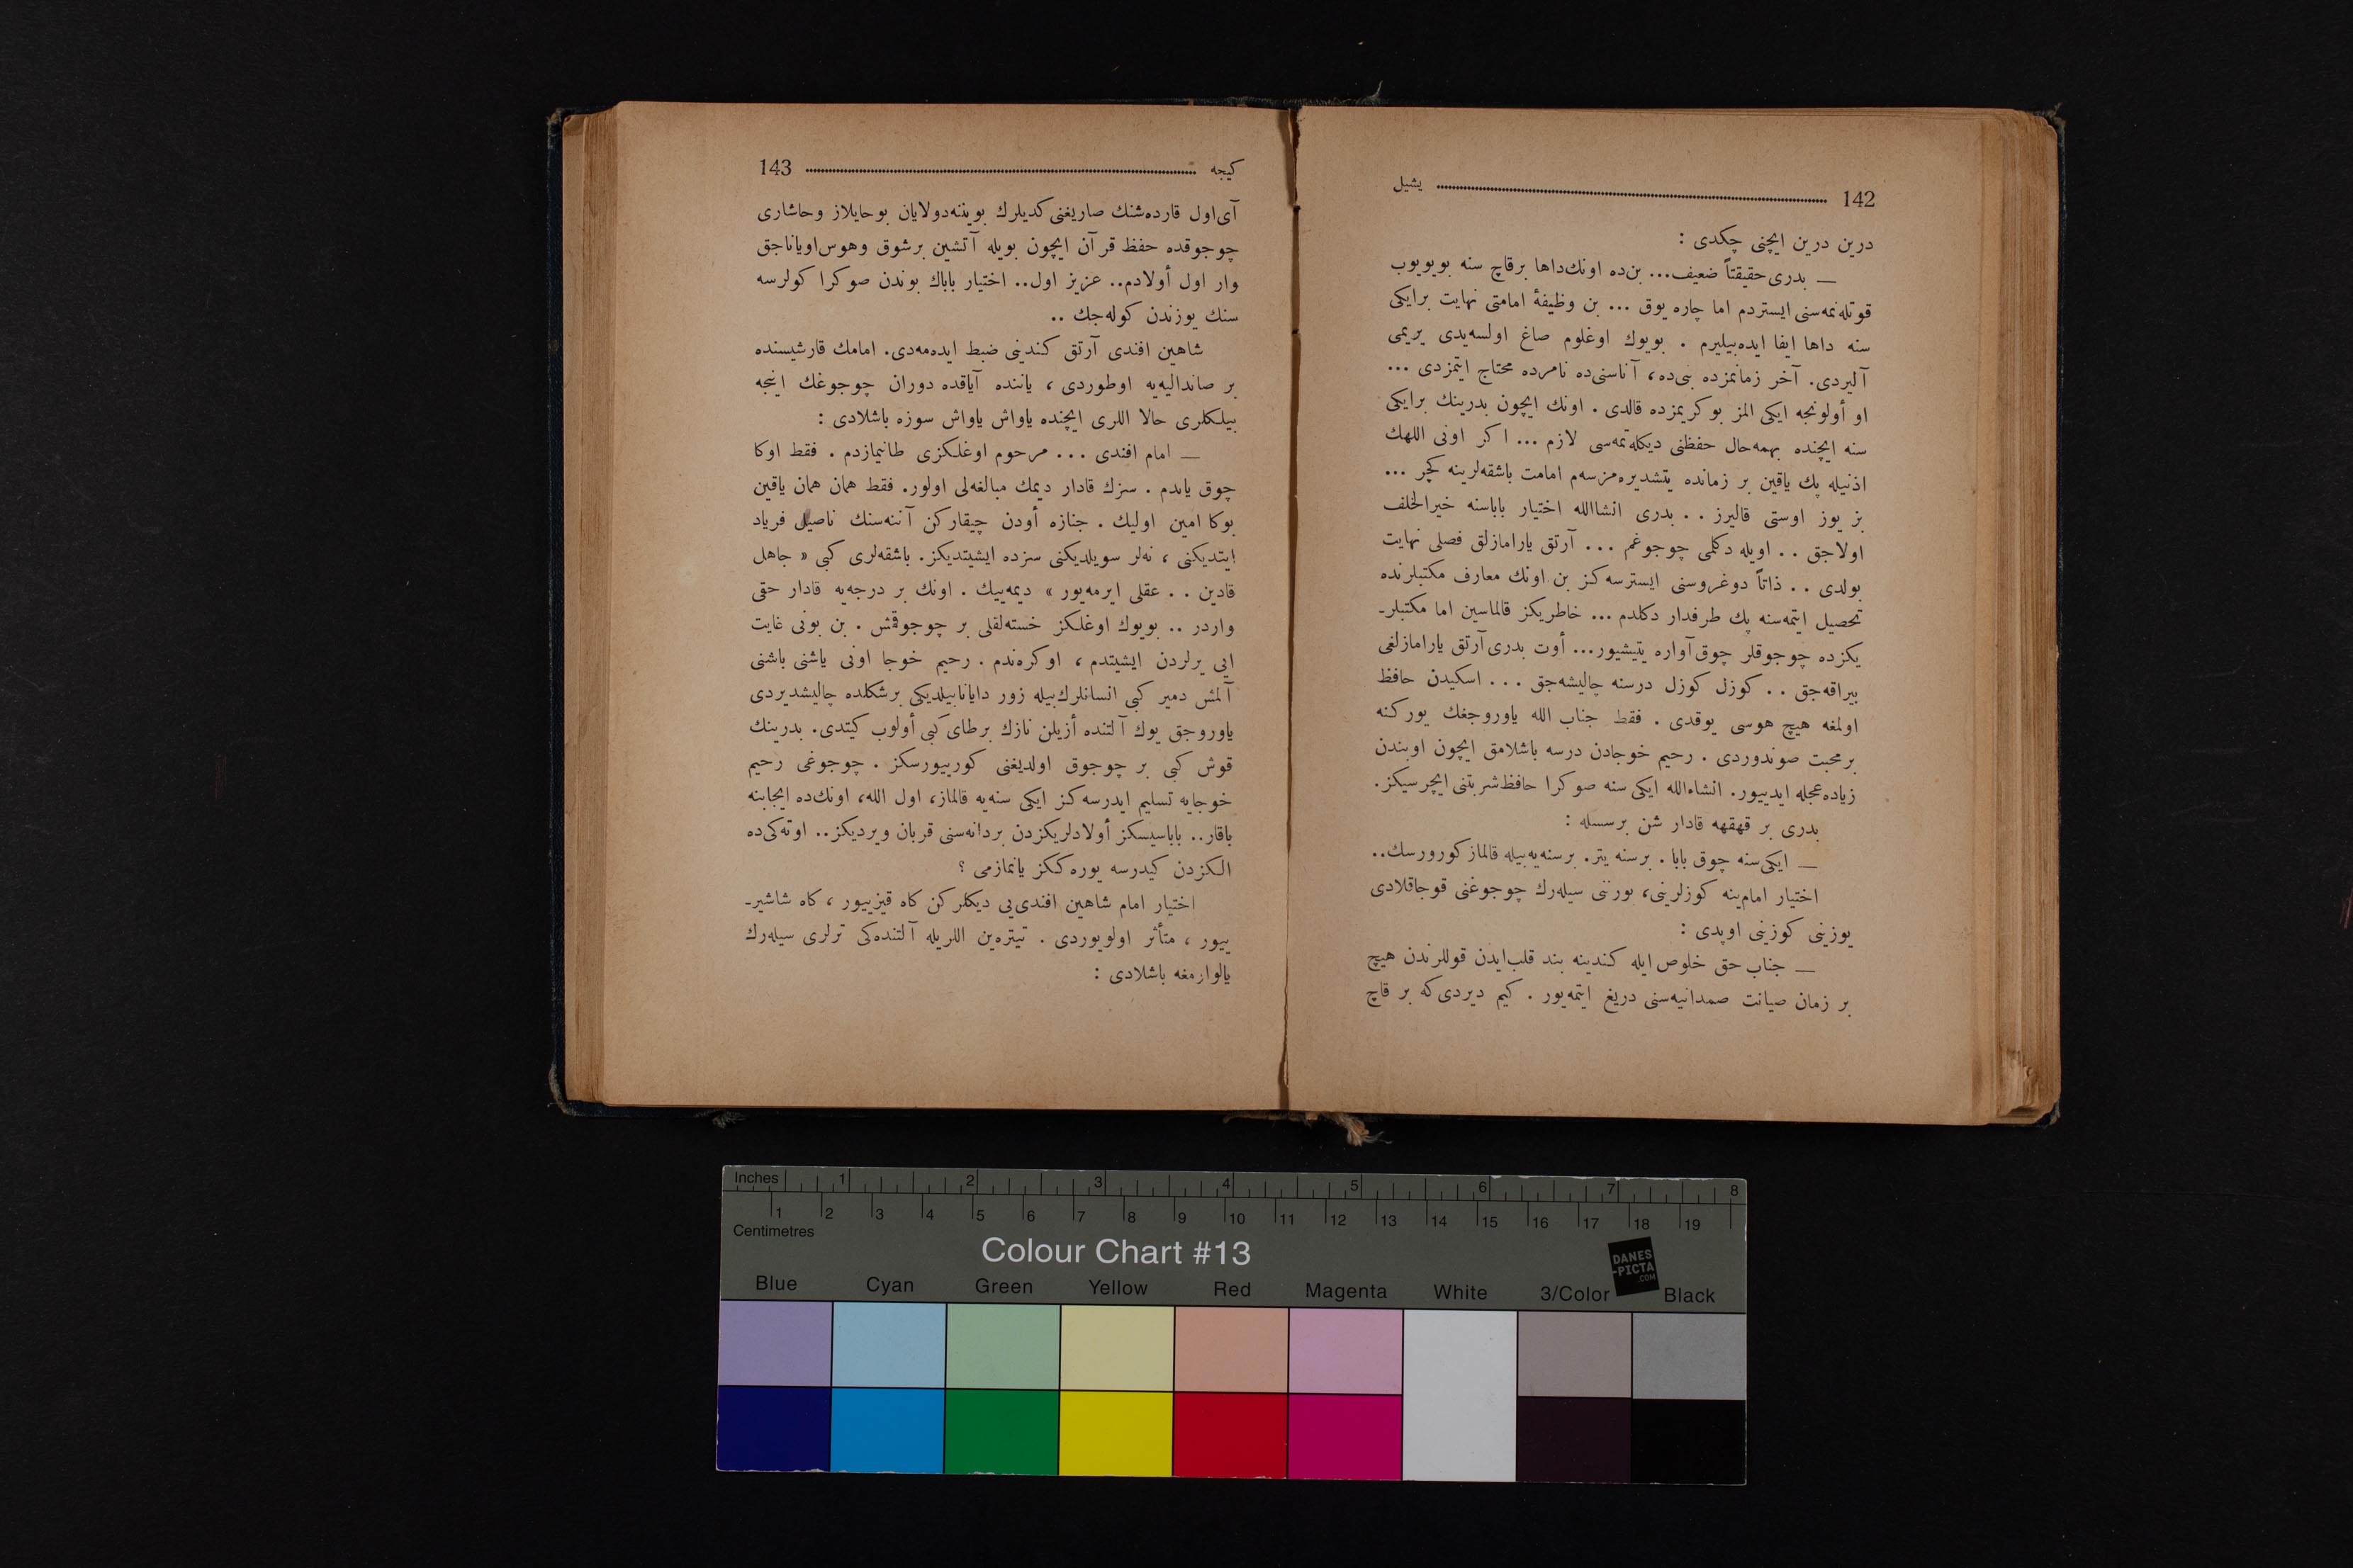 142 یشیل
درین درین ایچنی چكدی :
— بدری حقیقتاً ضعیف... بن‌ده اونك‌داها برقاچ سنه بویویوب
قوتله‌نمه‌سنی ایستردم اما چاره یوق ... بن وظیفهٔ امامتی نهایت برایكی
سنه داها ایفا ایده‌بیلیرم . بویوك اوغلوم صاغ اولسه‌یدی یریمی
آلیردی. آخر زمانمزده بنی‌ده، آناسنی‌ده نامرده محتاج ایتمزدی ...
او أولونجه ایكی المز بوكریمزده قالدی . اونك ایچون بدرینك برایكی
سنه ایچنده بهمه‌حال حفظنی دیكله‌تمه‌سی لازم ... اكر اونی اللهك
اذنیله پك یاقین بر زمانده یتشدیره‌مزسه‌م امامت باشقه‌لرینه كچر ...
بز یوز اوستی قالیرز . . بدری انشاالله اختیار باباسنه خیرالخلف
اولاجق . . اویله دكلمی چوجوغم ... آرتق یارامازلق فصلی نهایت
بولدی . . ذاتاً دوغروسنی ایسترسه‌كز بن اونك معارف مكتبلرنده
تحصیل ایتمه‌سنه پك طرفدار دكلدم ... خاطریكز قالماسین اما مكتبلر-
یكزده چوجوقلر چوق آواره یتیشیور... أوت بدری آرتق یارامازلغی
بیراقه‌جق . . كوزل كوزل درسنه چالیشه‌جق . . . اسكیدن حافظ
اولمغه هیچ هوسی یوقدی . فقط جناب الله یاوروجغك یوركنه
برمحبت صوندوردی . رحیم خوجادن درسه باشلامق ایچون اوبندن
زیاده‌عجله ایدییور. انشاءالله ایكی سنه صوكرا حافظ‌شربتنی ایچرسیكز.
بدری بر قهقهه قادار شن برسسله :
— ایكی‌سنه چوق بابا . برسنه یتر. برسنه‌یه‌بیله قالماز كورورسك..
اختیار امام‌ینه كوزلرینی، بورننی سیله‌رك چوجوغنی قوجاقلادی
یوزینی كوزینی اوپدی :
— جناب حق خلوص ایله كندینه بند قلب‌ایدن قوللرندن هیچ
بر زمان صیانت صمدانیه‌سنی دریغ ایتمه‌یور . كیم دیردی‌كه بر قاچ
كیجه 143
آی‌اول قارده‌شنك صاریغنی كدیلرك بویننه‌دولایان بوحایلاز وحاشاری
چوجوقده حفظ قرآن ایچون بویله آتشین برشوق وهوس‌اویاناجق
وار اول أولادم.. عزیز اول.. اختیار باباك بوندن صوكرا كولرسه
سنك یوزندن كوله‌جك ..
شاهین افندی آرتق كندینی ضبط ایده‌مه‌دی. امامك قارشیسنده
بر صاندالیه‌یه اوطوردی ، یاننده آیاقده دوران چوجوغك اینجه
بیلكلری حالا اللری ایچنده یاواش یاواش سوزه باشلادی :
— امام افندی ... مرحوم اوغلكزی طانیمازدم . فقط اوكا
چوق یاندم . سزك قادار دیمك مبالغه‌لی اولور. فقط همان همان یاقین
بوكا امین اولیك . جنازه أودن چیقاركن آننه‌سنك ناصیل فریاد
ایتدیكنی ، نه‌لر سویلدیكنی سزده ایشیتدیكز. باشقه‌لری كبی « جاهل
قادین . . عقلی ایرمه‌یور » دیمه‌ییك . اونك بر درجه‌یه قادار حقی
واردر .. بویوك اوغلكز خسته‌لقلی بر چوجوقمش . بن بونی غایت
ایی یرلردن ایشیتدم ، اوكره‌ندم . رحیم خوجا اونی یاشنی باشنی
آلمش دمیر كبی انسانلرك‌بیله زور دایانابیلدیكی برشكلده چالیشدیردی
یاوروجق یوك آلتنده أزیلن نازك برطای كبی أولوب كیتدی. بدرینك
قوش كبی بر چوجوق اولدیغنی كوریبورسكز . چوجوغی رحیم
خوجایه تسلیم ایدرسه‌كز ایكی سنه‌یه قالماز، اول الله، اونك‌ده ایجابنه
باقار.. باباسیسكز أولادلریكزدن بردانه‌سنی قربان ویردیكز.. اوته‌كی‌ده
الكزدن كیدرسه یوره‌ككز یانمازمی ؟
اختیار امام شاهین افندی‌یی دیكلركن كاه قیزییور ، كاه شاشیر-
ییور ، متأثر اولویوردی . تیتره‌ین اللریله آلتنده‌كی ترلری سیله‌رك
یالوارمغه باشلادی :
Inches 1 2 3 4 5 6 7 8
1 2 3 4 5 6 7 8 9 10 11 12 13 14 15 16 17 18 19
Centimetres
Colour Chart #13
DANES
-PICTA
.COM
Blue Cyan Green Yellow Red Magenta White 3/Color Black